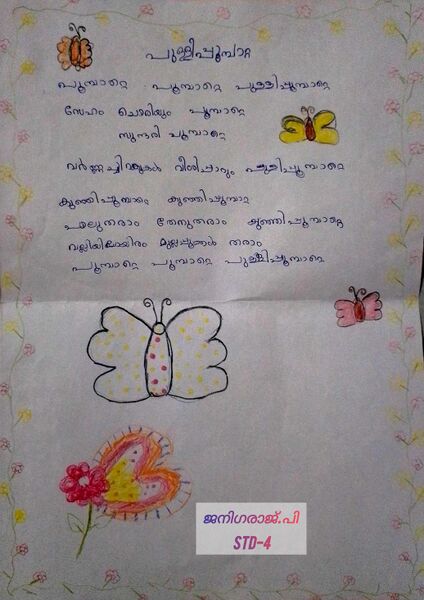 പുള്ളിപ്പൂമ്പാറ്റ
പൂമ്പാറ്റെ പൂമ്പാറ്റെ പുള്ളിപ്പൂമ്പാറ്റെ
സ്നേഹം ചൊരിയും പൂമ്പാറ്റെ
സുന്ദരി പൂമ്പാറ്റെ
വർണ്ണച്ചിറകുകൾ വീശിപ്പാറും പുള്ളിപ്പൂമ്പാറ്റെ
കുഞ്ഞിപ്പൂമ്പാറ്റെ കുഞ്ഞിപ്പൂമ്പാറ്റ
പാലുതരാം തേനുതരാം കുഞ്ഞിപ്പൂമ്പാറ്റെ
വല്ലിയിലായിരം മുല്ലപ്പൂക്കൾ തരാം
പൂമ്പാറ്റെ പൂമ്പാറ്റെ പുള്ളിപ്പൂമ്പാറ്റെ
ജനിഗരാജ്.പി
STD-4